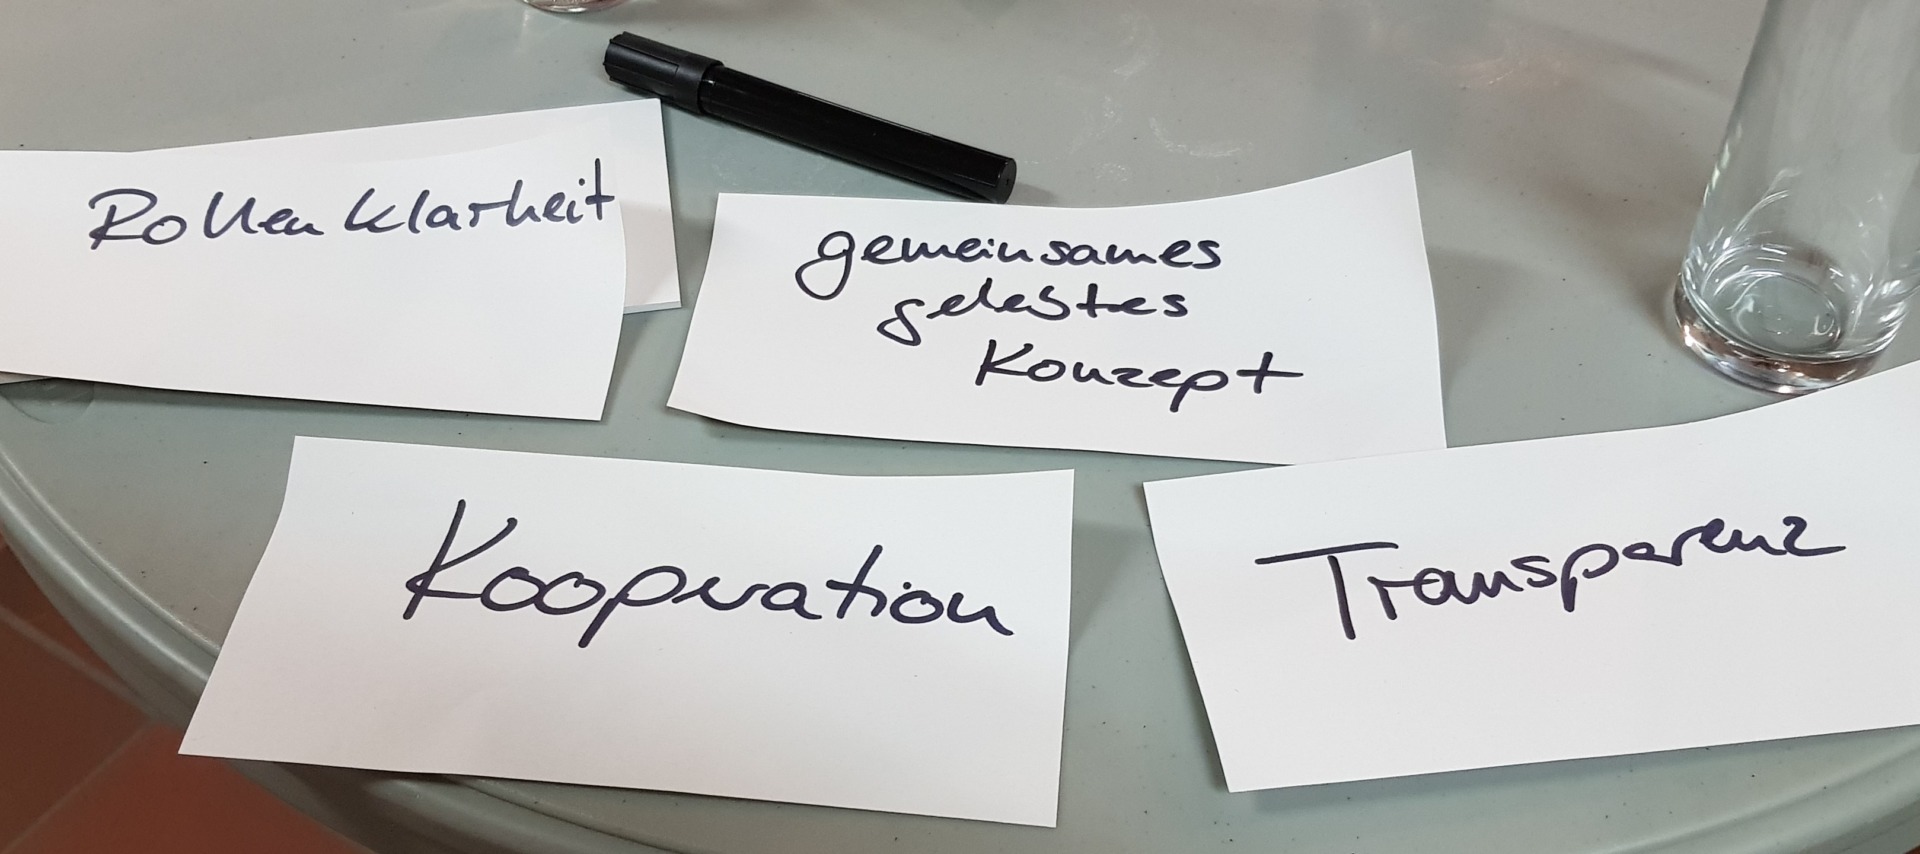 Rollenklarheit
gemeinsames
gelebtes
Konzept
Kooperation
Transparenz